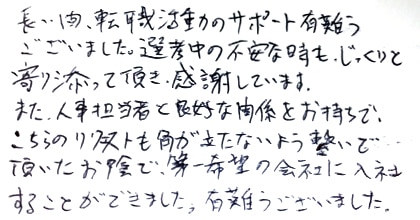 長い間、転職活動のサポート有難う
ございました。選考中の不安な時も、じっくりと
寄り添って頂き、感謝しています。
また、人事担当者と良好な関係をお持ちで、
こちらのリクエストも角が立たないよう繋いで
頂いたお陰で、第一希望の会社に入社
することができました。有難うございました。